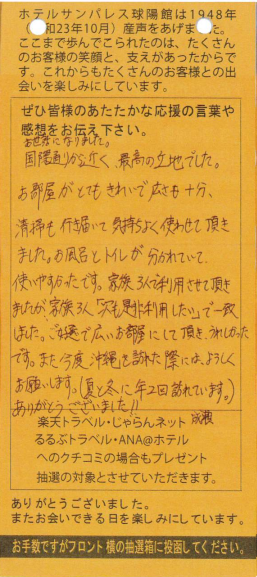 ホテルサンパレス球陽館は1948年
和23年10月）産声をあげました。
ここまで歩んでこられたのは、たくさん
のお客様の笑顔と、支えがあったからで
す。これからもたくさんのお客様との出
会いを楽しみにしています。
ぜひ皆様のあたたかな応援の言葉や
感想をお伝え下さい。
お世話になりました。
国際通りから近く、最高の立地でした。
お部屋がとてもきれいで広さも十分、
清掃も行き届いて気持ちよく使わせて頂き
ました。お風呂とトイレが分かれていて、
使いやすかったです。家族3人で利用させて頂き
ましたが、家族3人「次も是非利用したい」で一致
しました。ご好意で広いお部屋にして頂き、うれしかった
です。また今度沖縄を訪れた際には、よろしく
お願いします。（夏と冬に年2回訪れています。）
ありがとうございました!!
楽天トラベル・じゃらんネット
るるぶトラベル・ANA@ホテル
へのクチコミの場合もプレゼント
抽選の対象とさせていただきます。
ありがとうございました。
またお会いできる日を楽しみにしています。
お手数ですがフロント横の抽選箱に投函してください。